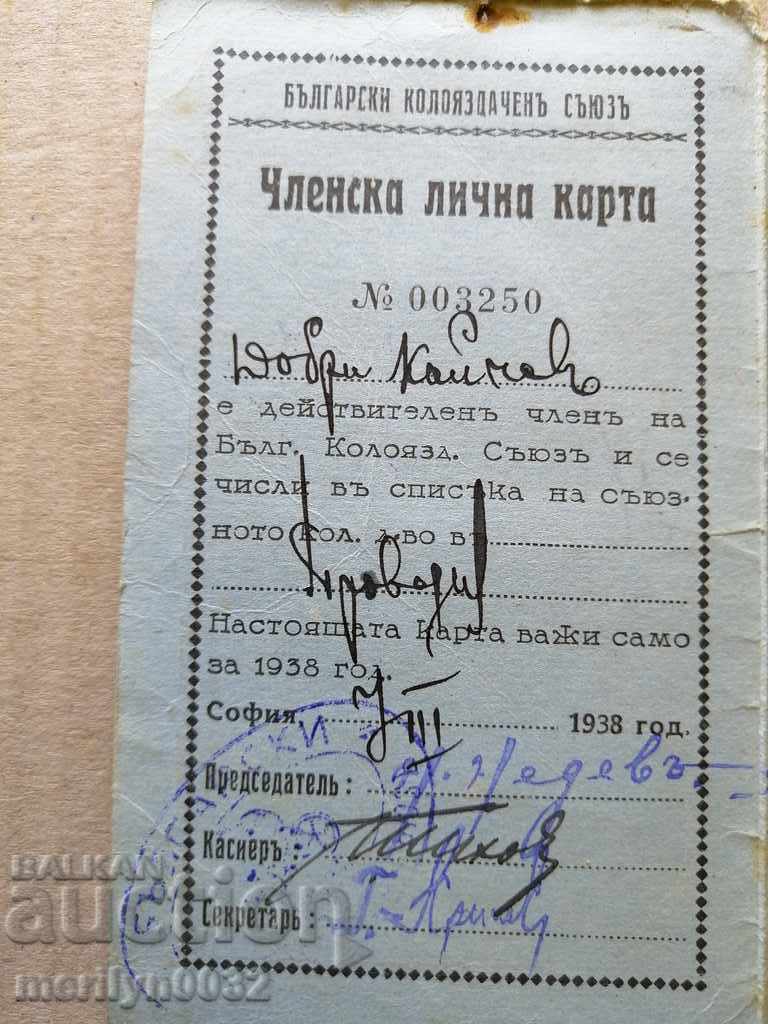 БЪЛГАРСКИ КОЛОЯЗДАЧЕНЪ СЪЮЗЪ
Членска лична карта
№ 003250
Добри
е действителенъ членъ на
Бълг. Колоязд. Съюзъ и се
числи въ списъка на съюз-
ното кол. д-во въ
Провадия
Настоящата карта важи само
за 1938 год.
София, 7 III 1938 год.
Председатель: Недевъ
Касиеръ:
Секретарь: Г.
BALKAN
auction
merilyn0032